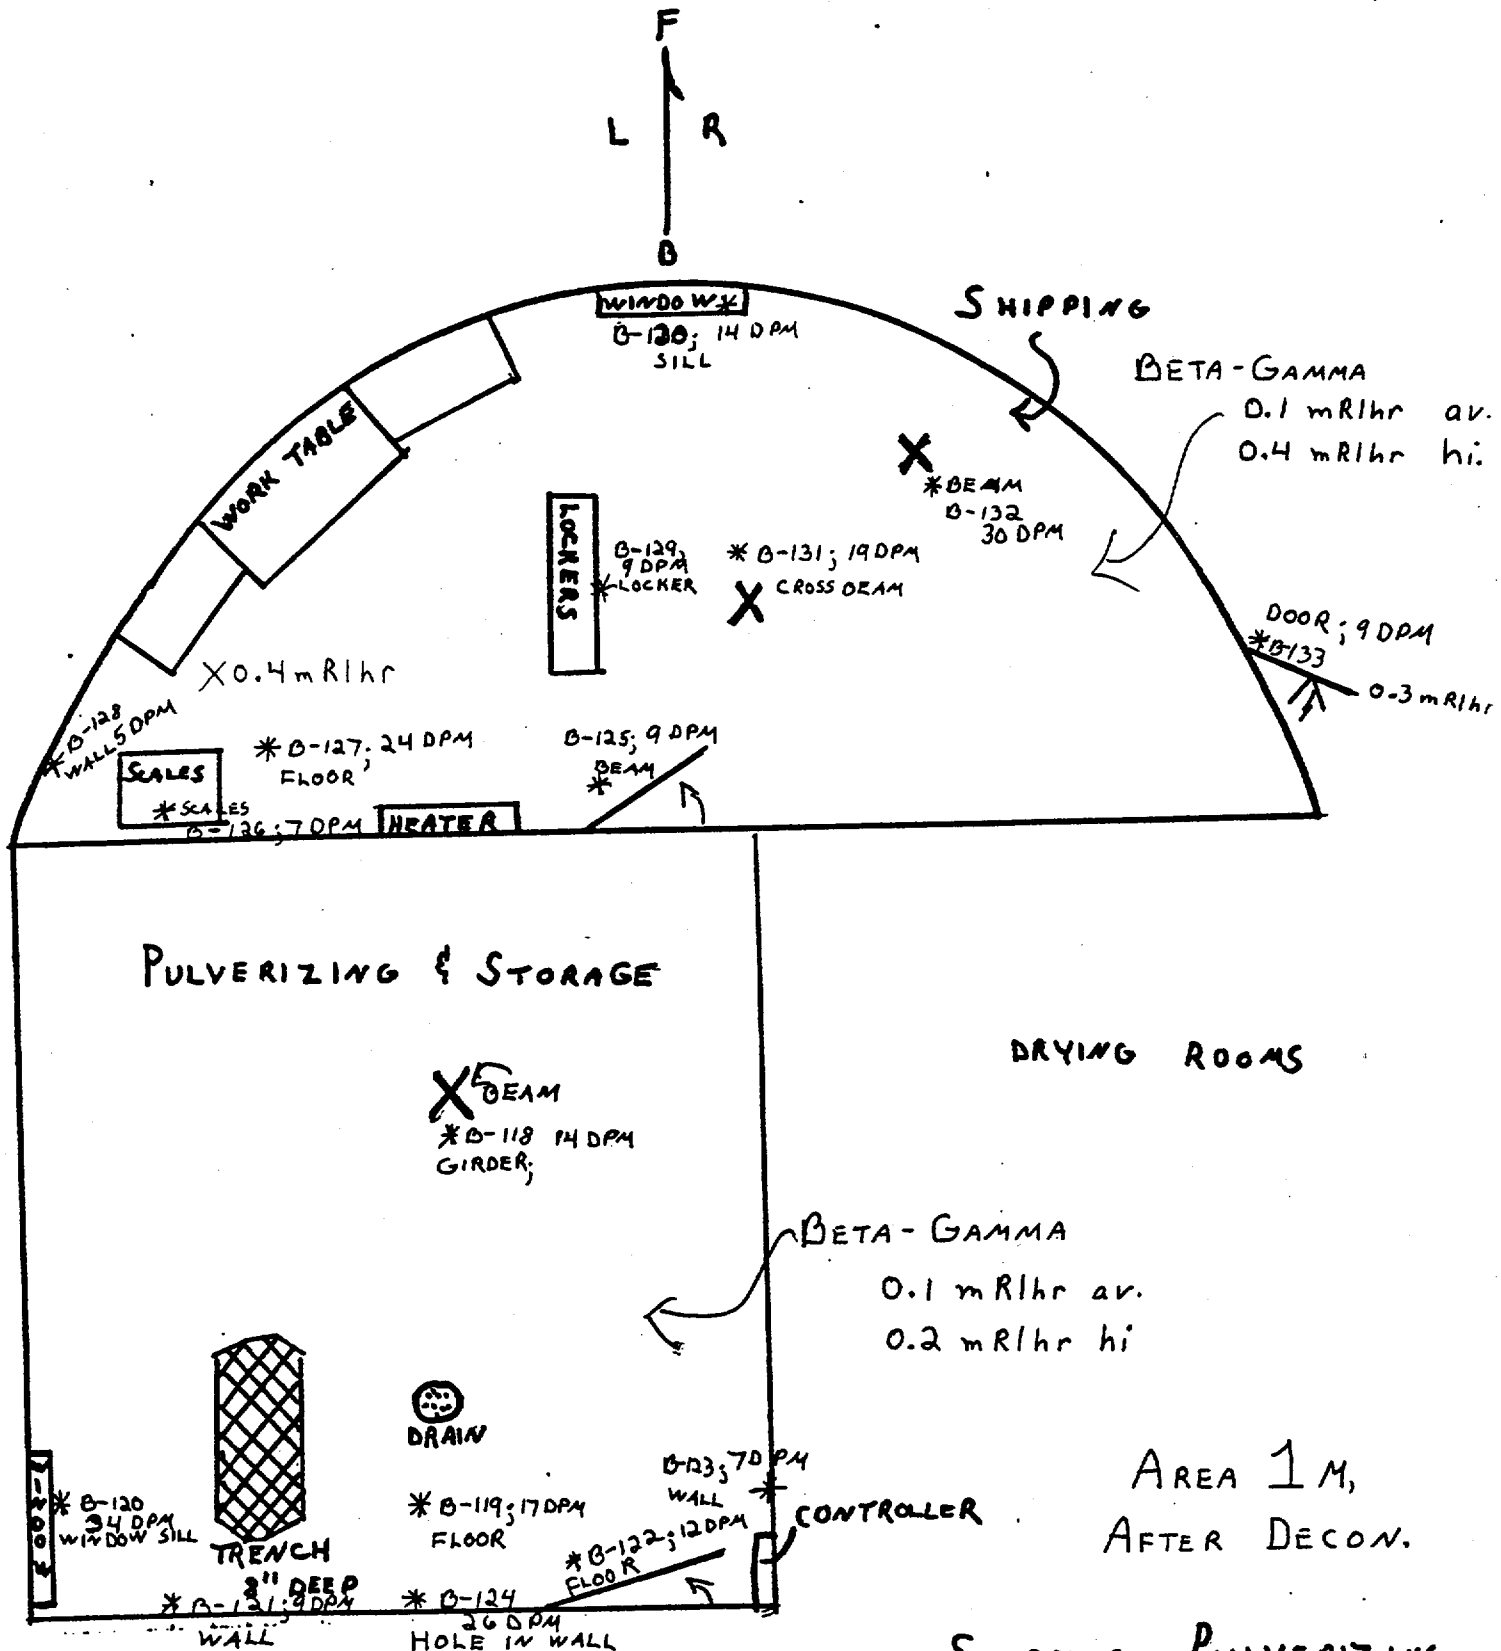 F
L R
B
WINDOW*
B-130; 14 DPM
SILL
SHIPPING
BETA-GAMMA
0.1 mR/hr av.
0.4 mR/hr hi.
WORK TABLE
LOCKERS
*BEAM
B-132
30 DPM
B-129,
9 DPM
*LOCKER
* B-131; 19 DPM
CROSS BEAM
DOOR; 9 DPM
*B-133
0.3 mR/hr
X 0.4 mR/hr
* B-128
WALL 5 DPM
* B-127; 24 DPM
FLOOR
B-125; 9 DPM
BEAM
*
SCALES
* SCALES
B-126; 7 DPM
HEATER
PULVERIZING & STORAGE
DRYING ROOMS
BEAM
* B-118 14 DPM
GIRDER;
BETA-GAMMA
0.1 mR/hr av.
0.2 mR/hr hi
DRAIN
WINDOW
* B-120
34 DPM
WINDOW SILL
TRENCH
DEEP
* B-119; 17 DPM
FLOOR
B-123; 7 DPM
WALL
*
CONTROLLER
* B-122; 12 DPM
FLOOR
* B-121; 9 DPM
WALL
* B-124
26 DPM
HOLE IN WALL
AREA 1 M,
AFTER DECON.